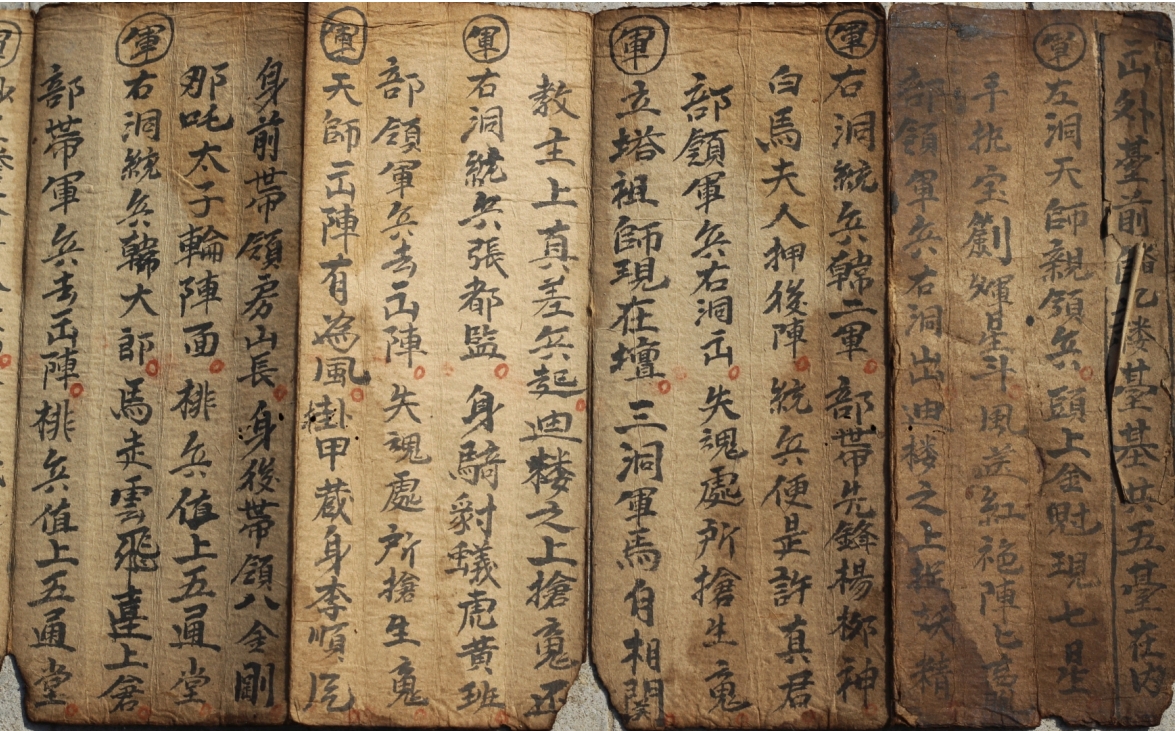 出外臺前 乙娄基基共五臺在内
軍 左洞天師親領兵 頭上金冠現七星
手拒宝劍輝星斗 風 紅袍陣
部領軍兵右洞出 迪楼之上捉妖精
軍 右洞統兵韓二軍 部带先鋒楊柳神
白馬夫人押後陣 統兵便是許真君
部領軍兵右洞出 失魂處所搶生魂
軍 立塔祖師現在壇 三洞軍馬自相関
教主上真差兵起 迪楼之上搶魂还
軍 右洞統兵張都監 身騎豺蟻虎黄班
部領軍兵去出陣 失魂處所搶生魂
軍 天師出陣有為風 掛甲蔵身李順
身前带領房山長 身後带領八金剛
那吒太子輪陣面 排兵值上五通堂
軍 右洞統兵韓大郎 馬走雲飛 上倉
部带軍兵去出陣 排兵值上五通堂
軍